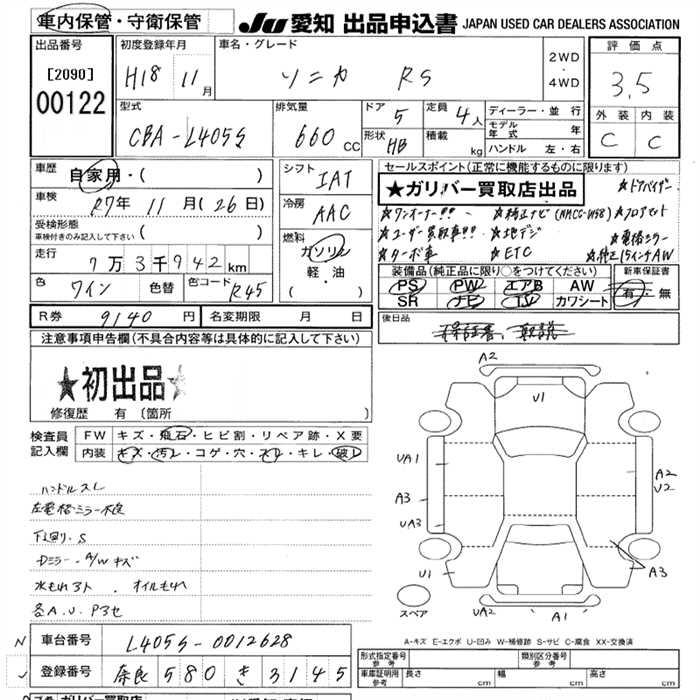 車内保管・守衛保管
JU 愛知 出品申込書 JAPAN USED CAR DEALERS ASSOCIATION
出品番号
[2090]
00122
初度登録年月
H18 11月
車名・グレード
ソニカ RS
2WD
・
4WD
評価点
3.5
外装 内装
C C
型式
CBA-L405S
排気量
660 CC
ドア
5
形状
HB
定員
4人
積載
kg
ディーラー・並行
モデル年式 年
ハンドル 左・右
車歴
自家用・( )
車検
27年 11月(26日)
受検形態
車検付きのみ記入して下さい( )
走行
7万3千942km
色
ワイン
色替
色コード
R45
シフト
IAT
冷房
AAC
燃料
ガソリン
軽・油
( )
セールスポイント(正常に機能するものに限ります)
★ガリバー買取店出品
★ドアバイザー
★ワンオーナー!!! ★純正ナビ(NHCC-W58) ★フロアセット
★ユーザー買取車!!! ★地デジ ★電格ミラー
★ターボ車 ★ETC ★純正15インチAW
装備品(純正品に限り○をつけてください)
PS PW エアB AW
SR ナビ TV カワシート
新車保証書
有・無
R券 9140円
名変期限 月 日
後日品
保証書、取説
注意事項申告欄(不具合内容等は具体的に記入して下さい)
★初出品★
修復歴 有 〔箇所 〕
検査員
記入欄
FW キズ・飛石・ヒビ割・リペア跡・X要
内装 キズ・汚レ・コゲ・穴・スレ・キレ・破レ
ハンドルスレ
左電格ミラー不良
下廻り.S
Dミラー.A/Wキズ
各A.U.P3セ
A2
U1
UA1
A3
UA3
U1
A2
U2
A3
UA2
A1
スペア
A-キズ E-エクボ U-凹み W-補修跡 S-サビ C-腐食 XX-交換済
車台番号
L405S-0012628
登録番号
奈良 580 き 3145
形式指定番号
参考
類別区分番号
参考
車庫証明用
参考
長さ cm
幅 cm
高さ cm
ガリバー買取店